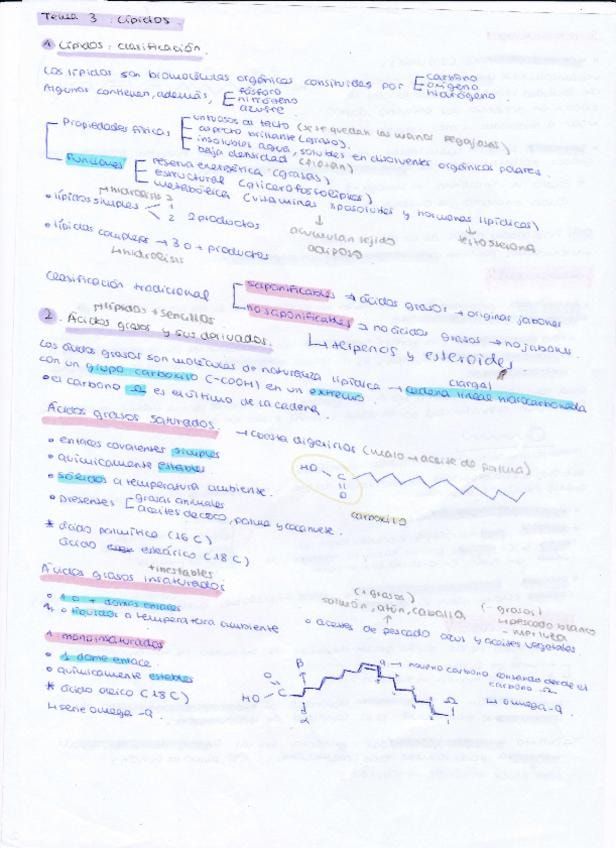 Tema 3: Lípidos.
1 Lípidos: clasificación.
Los lípidos son biomoléculas orgánicas constituidas por carbono
oxígeno
hidrógeno
Algunos contienen, además, fósforo
nitrógeno
azufre
Propiedades físicas untuosos al tacto (se te quedan las manos pegajosas)
aspecto brillante (graso).
insolubles agua, solubles en disolventes orgánicos polares.
baja densidad (flotan)
Funciones reserva energética (grasas)
estructural (glicerofosfolípidos)
metabólica (vitaminas liposolubles y hormonas lipídicas)
hidrólisis
• lípidos simples 1
2 2 productos
acumulan tejido adiposo
testosterona
• lípidos complejos → 3 o + productos
↳ hidrólisis
Clasificación tradicional saponificables → ácidos grasos → originar jabones
no saponificables → no ácidos grasos → no jabones.
↳ terpenos y esteroides
↱ lípidos + sencillos
2. Ácidos grasos y sus derivados.
Los ácidos grasos son moléculas de naturaleza lipídica → cadena lineal hidrocarbonada
(larga)
con un grupo carboxilo (-COOH) en un extremo.
• el carbono Ω es el último de la cadena.
Ácidos grasos saturados. → cuesta digerirlos (malo → aceite de palma)
• enlaces covalentes simples
• químicamente estables.
• sólidos a temperatura ambiente.
• presentes grasas animales
aceites de coco, palma y cacahuete.
HO C O
carboxilo
* ácido palmítico (16 C)
ácido esteárico (18 C)
+ inestables
Ácidos grasos insaturados:
• 1 o + dobles enlaces
• líquidos a temperatura ambiente
(+ grasos)
salmón, atún, caballa
(- grasos)
↳ pescado blanco
- merluza
• aceites de pescado azul y aceites vegetales.
1 monoinsaturados
• 1 doble enlace.
• químicamente estables
* ácido oleico (18 C)
↳ serie omega -9.
O HO C β α 9 Ω 1
→ noveno carbono contando desde el
carbono Ω.
↳ omega-9.